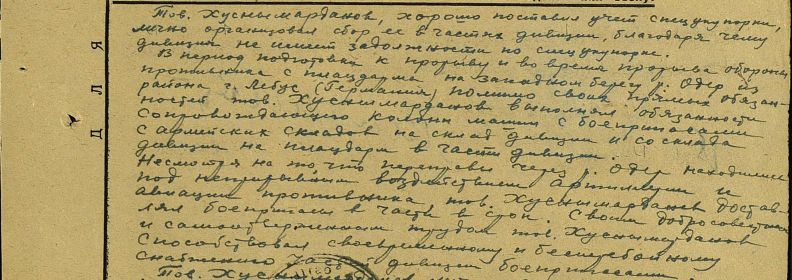 Тов. Хуснымарданов, хорошо поставил учет спецукупорки,
лично организовал сбор ее в частях дивизии, благодаря чему
дивизия не имеет задолжности по спецукупорке.
В период подготовки к прорыву и во время прорыва обороны
противника с плацдарма на западном берегу р. Одер из
района г. Лебус (Германия) помимо своих прямых обязан-
ностей тов. Хуснымарданов выполнял обязанности
сопровождающего колонн машин с боеприпасами
с армейских складов на склад дивизии и со склада
дивизии на плацдарм в части дивизии.
Несмотря на то что переправы через р. Одер находились
под непрерывным воздействием артиллерии и
авиации противника, тов. Хуснымарданов достав-
лял боеприпасы в части в срок. Своим добросовестным
и самоотверженным трудом тов. Хуснымарданов
способствовал своевременному и бесперебойному
снабжению частей дивизии боеприпасами.
Тов.
ДЛЯ